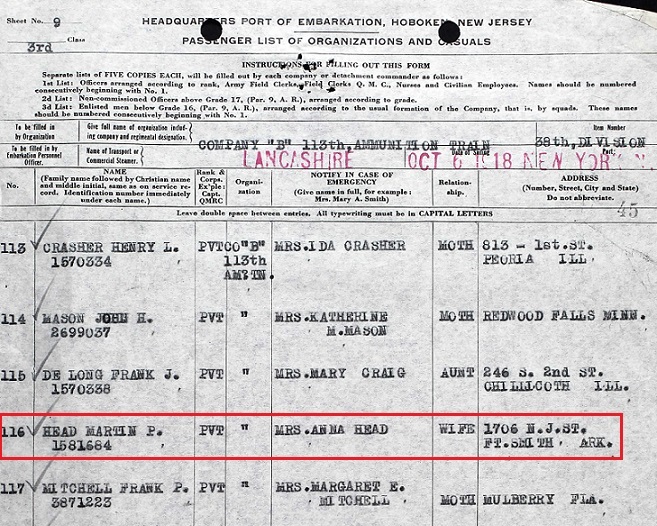 Sheet No. 9
HEADQUARTERS PORT OF EMBARKATION, HOBOKEN, NEW JERSEY
3rd Class
PASSENGER LIST OF ORGANIZATIONS AND CASUALS
INSTRUCTIONS FOR FILLING OUT THIS FORM
Separate lists of FIVE COPIES EACH, will be filled out by each company or detachment commander as follows:
1st List: Officers arranged according to rank, Army Field Clerks, Field Clerks Q. M. C., Nurses and Civilian Employees. Names should be numbered
consecutively beginning with No. 1.
2d List: Non-commissioned Officers above Grade 17, (Par. 9, A. R.), arranged according to grade.
3d List: Enlisted men below Grade 16, (Par. 9, A. R.), arranged according to the usual formation of the Company, that is, by squads. These names
should be numbered consecutively beginning with No. 1.
To be filled in by Organization
Give full name of organization including company and regimental designation.
COMPANY "B" 113th, AMMUNITION TRAIN
38th, DIVISION
Item Number
To be filled in by Embarkation Personnel Officer.
Name of Transport or Commercial Steamer.
LANCASHIRE
Date of Sailing
OCT 6 1918
Port:
NEW YORK
No.
NAME
(Family name followed by Christian name and middle initial, same as on service record. Identification number immediately under each name.)
Rank & Corps. Ex'ple: Capt. QMRC
Organi-zation
NOTIFY IN CASE OF EMERGENCY
(Give name in full, for example: Mrs. Mary A. Smith)
Relation-ship.
ADDRESS
(Number, Street, City and State) Do not abbreviate.
Leave double space between entries. All typewriting must be in CAPITAL LETTERS
45
113 CRASHER HENRY L. PVT CO"B" MRS.IDA CRASHER MOTH 813 - 1st.ST.
1570334 113th PEORIA ILL.
AM.TN.
114 MASON JOHN H. PVT " MRS.KATHERINE MOTH REDWOOD FALLS MINN.
2699037 M.MASON
115 DE LONG FRANK J. PVT " MRS.MARY CRAIG AUNT 246 S. 2nd ST.
1570338 CHILLICOTH ILL.
116 HEAD MARTIN P. PVT " MRS.ANNA HEAD WIFE 1706 N.J.ST.
1581684 FT.SMITH, ARK.
117 MITCHELL FRANK P. PVT " MRS.MARGARET E.
3871223 MITCHELL MOTH MULBERRY FLA.